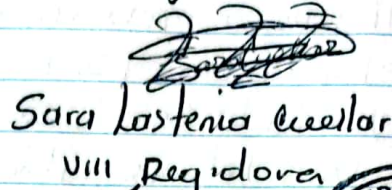 Sara Lastenia Cuellar
VIII Regidora